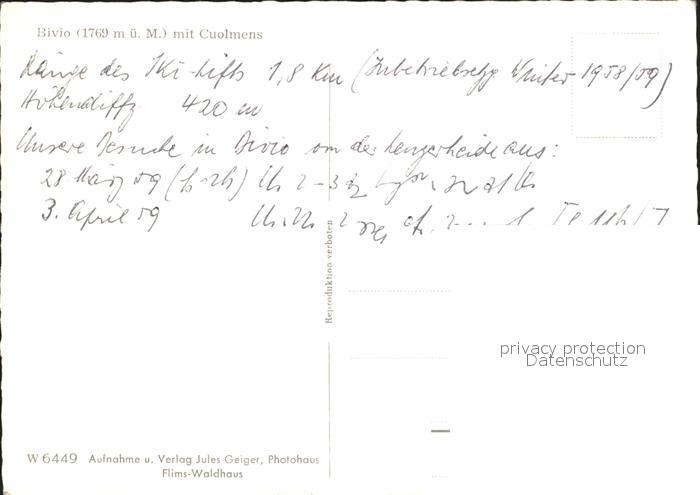 Bivio (1769 m ü. M.) mit Cuolmens
Länge des Ski-Lifts 1,8 Km (Inbetriebsetzg Winter 1958/59)
Höhendiffz 420 m
Unsere Besuche in Bivio von der Lenzerheide aus:
28 März 59
3. April 59
Reproduktion verboten
privacy protection
Datenschutz
W 6449 Aufnahme u. Verlag Jules Geiger, Photohaus
Flims-Waldhaus